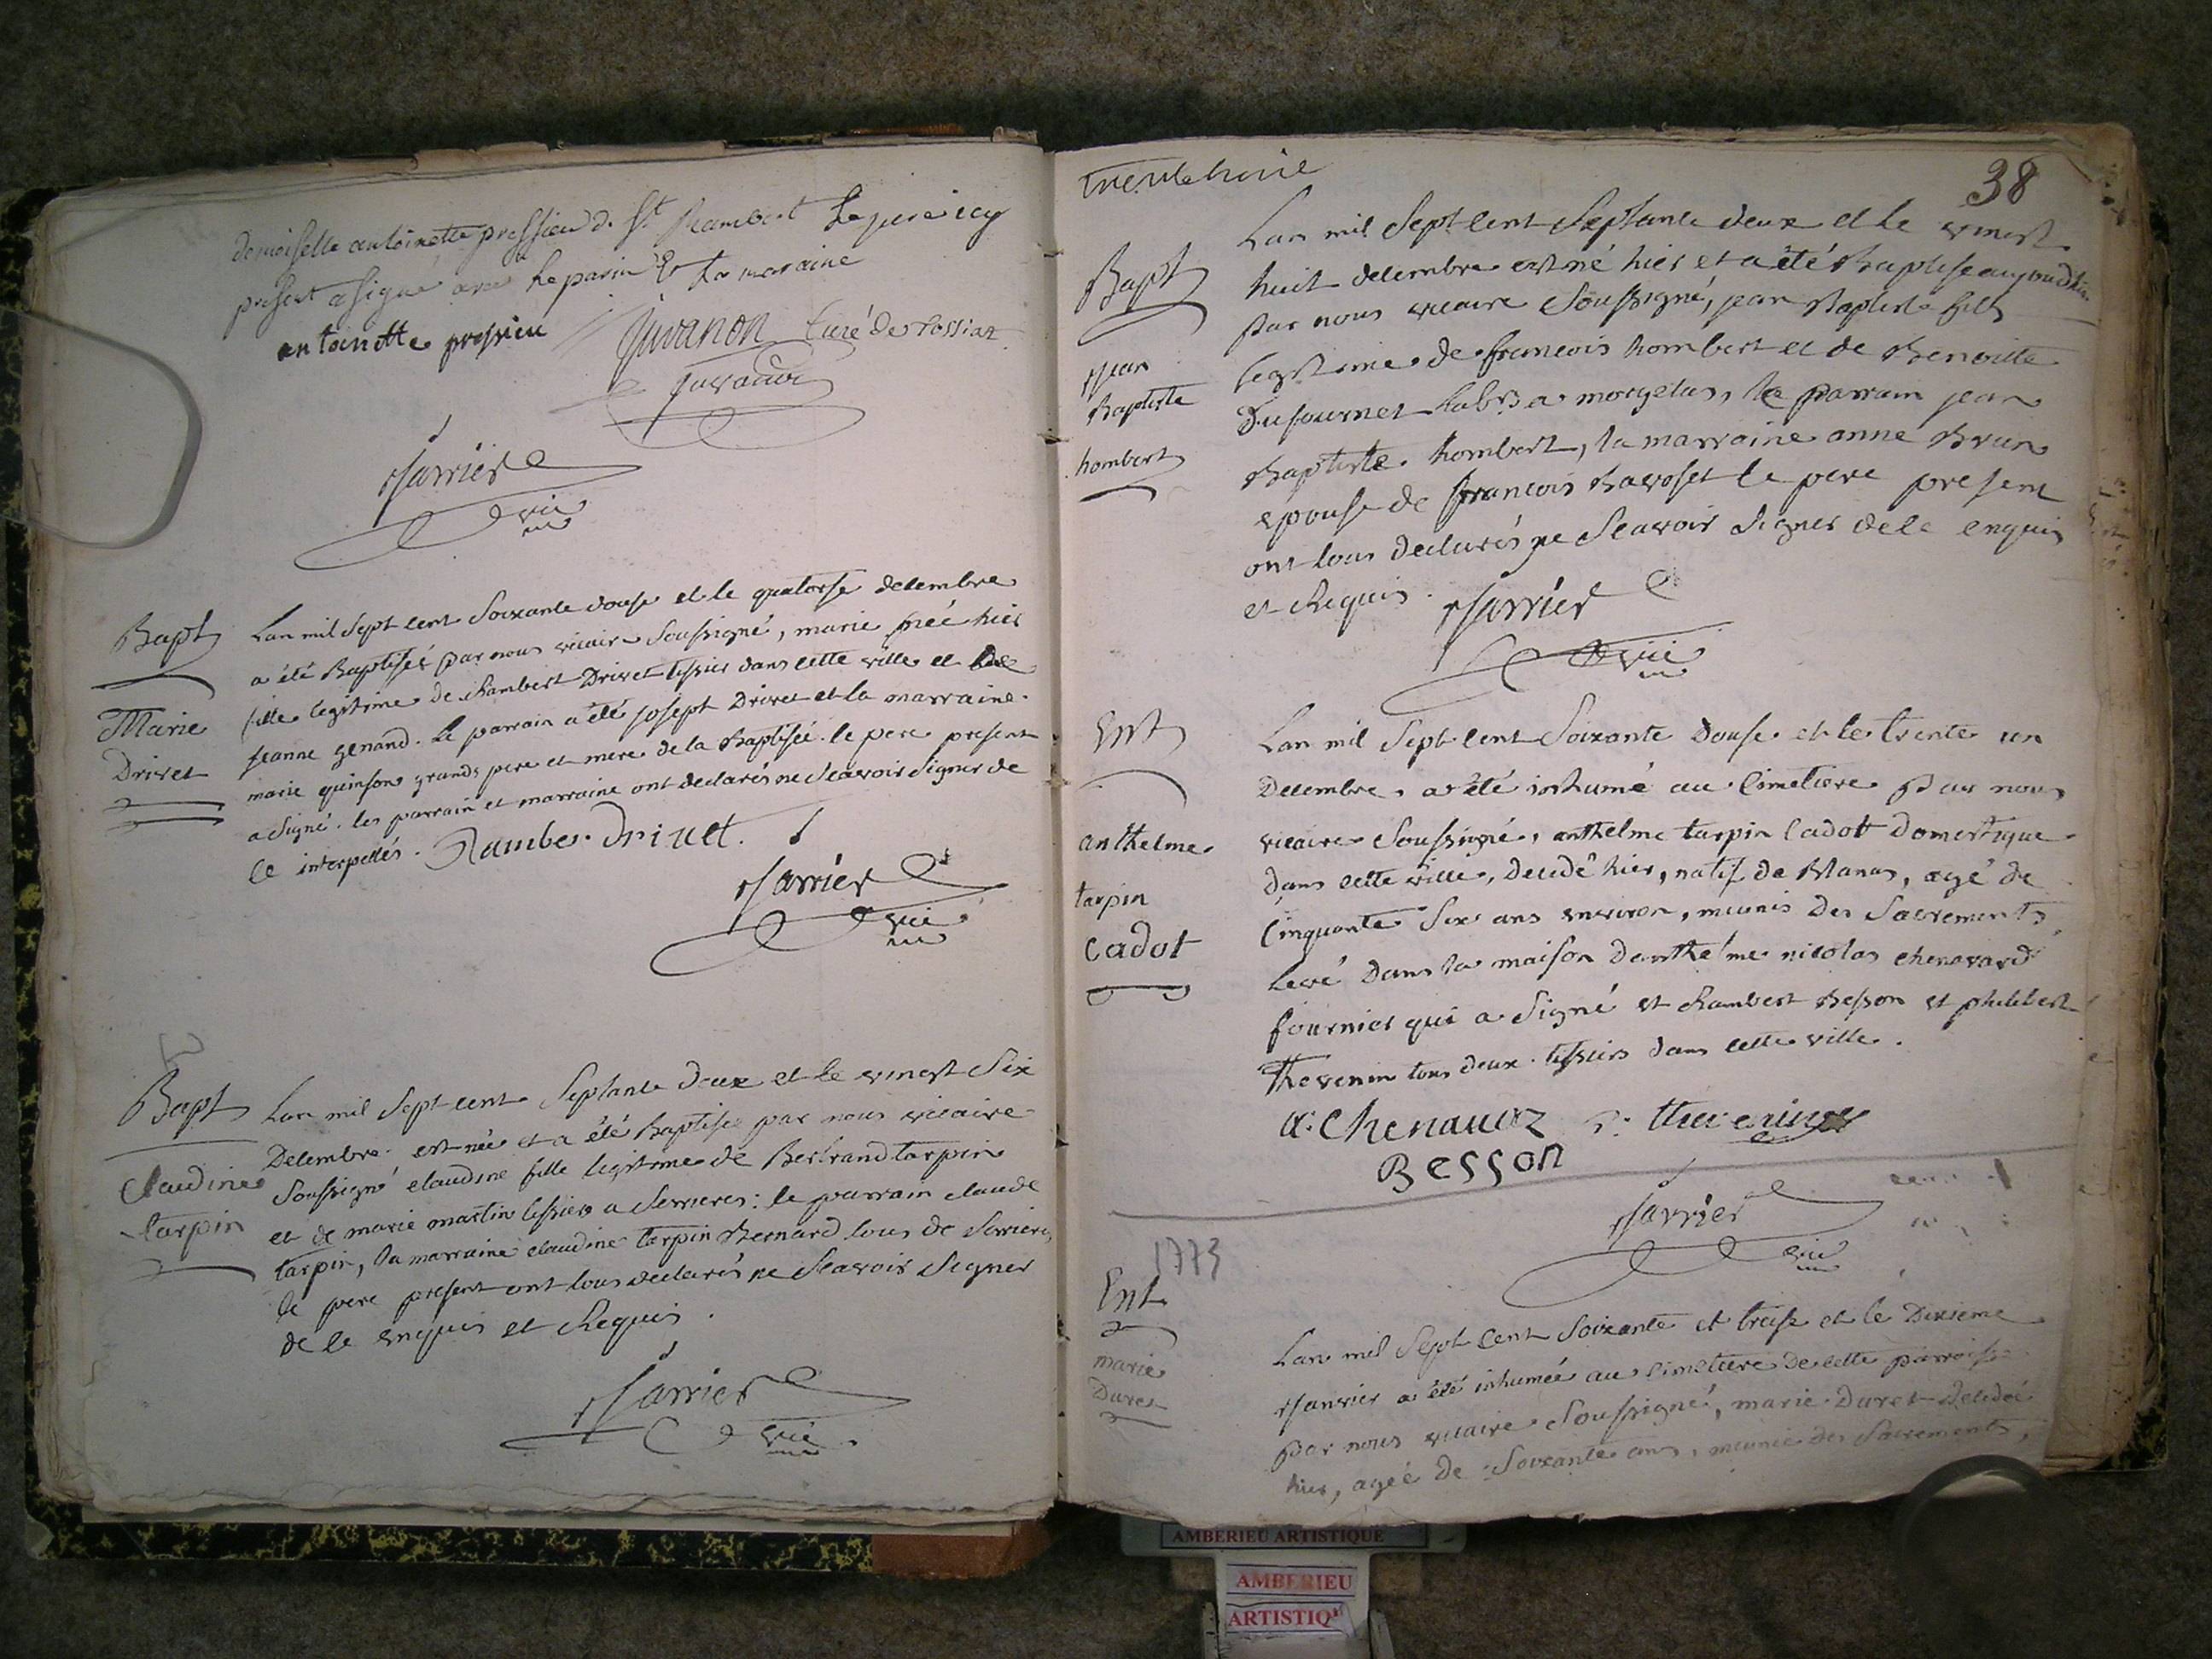 demoiselle antoinette pressieu de St Rambert Le pere icy
present a signé avec Le parin & La maraine
antoinette pressieu
Juvanon Curé de Rossiat
Juvanon
Jarrier
vic
Bapt
Marie
Drivet
Lan mil Sept cent Soixante douse et le quatorse decembre
a été Baptisée par nous vicaire Soussigné, marie née hier
fille legitime de Rambert Drivet tissier dans cette ville et de
jeanne genand. Le parrain a été joseph Drivet et la marraine
marie quinson grands pere et mere de la Baptisée. le pere present
a Signé. les parrain et marraine ont declarés ne Scavoir Signer de
ce interpellés. Rambe. Drivet.
Jarrier
vic
Bapt
Claudine
tarpin
Lan mil Sept cent Septante deux et le vingt Six
Decembre est née et a été Baptisée par nous vicaire
Soussigné claudine fille legitime de Bertrand tarpin
et de marie martin tissier a Serrieres: le parrain claude
tarpin, la marraine claudine tarpin Bernard tous de Serrieres
le pere present ont tous declarés ne Scavoir Signer
de ce enquis et Requis.
Jarrier
vic
trente huit
38
Bapt
Jean
Baptiste
hombert
Lan mil Sept cent Septante deux et le vingt
huit decembre est né hier et a été Baptisé aujourdhui
par nous vicaire Soussigné, jean Baptiste fils
legitime de francois hombert et de Benoitte
Dufournet habts a morgelas, le parrain jean
Baptiste hombert, la marraine anne Brun
epouse de francois Ravoset le pere present
ont tous declarés ne Scavoir Signer de ce enquis
et Requis.
Jarrier
vic
Ent
anthelme
tarpin
cadot
Lan mil Sept cent Soixante Douse et le trente un
Decembre, a été inhumé au Cimetiere Par nous
vicaire Soussigné, anthelme tarpin Cadot domestique
dans cette ville, decedé hier, natif de Blanas, agé de
Cinquante Six ans environ, munis Des Sacrements,
Levé Dans la maison Danthelme nicolas chenavard
fournier qui a Signé et Rambert Besson et philibert
Thevenin tous deux tissiers dans cette ville.
A: Chenavaz P: thevenin
Besson
Jarrier
vic
1773
Ent
marie
Duret
Lan mil Sept Cent Soixante et treise et le Dixieme
Janvier a été inhumée au Cimetiere de cette parroisse
par nous vicaire Soussigné, marie Duret decedée
hier, agée de Soixante ans, munie des Sacrements,
AMBERIEU ARTISTIQUE
AMBERIEU
ARTISTIQ